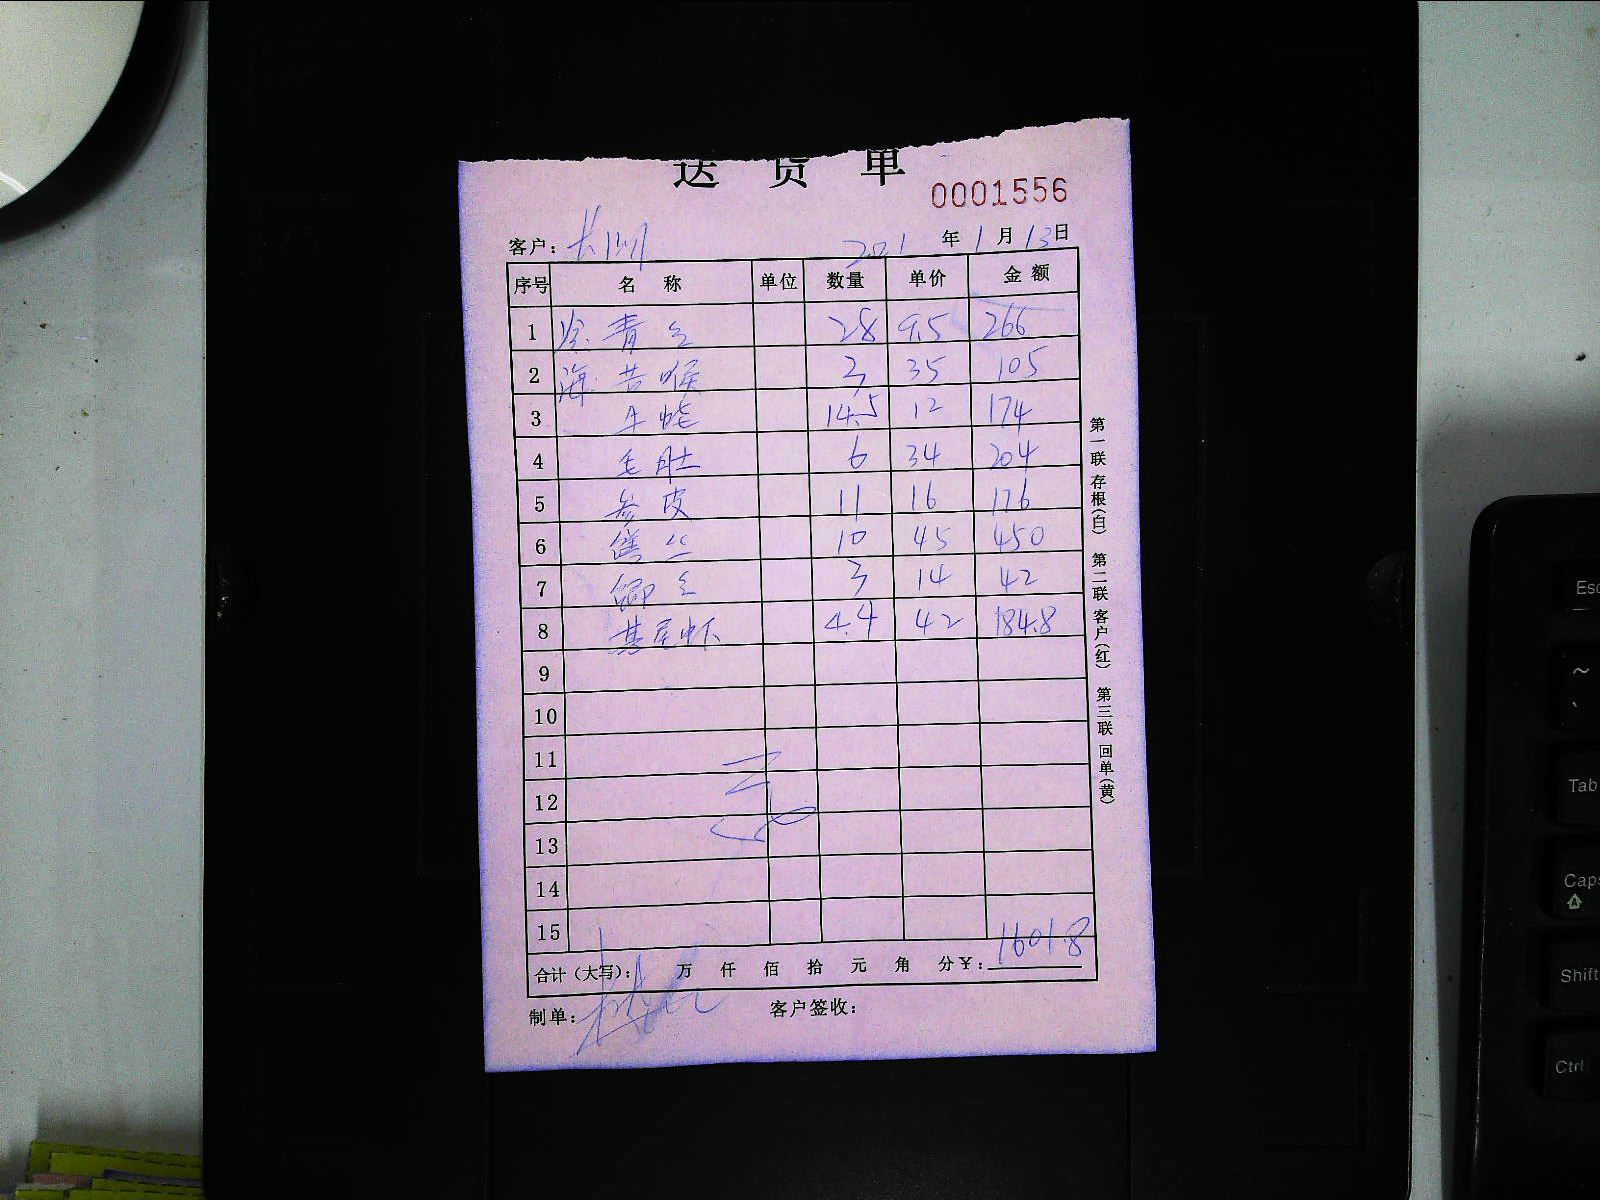 送货单
0001556
客户：长洲 2021年1月13日
序号 名称 单位 数量 单价 金额
1 青 28 9.5 266
2 海 黄喉 3 35 105
3 牛蛙 14.5 12 174
4 毛肚 6 34 204
5 皮 11 16 176
6 丝 10 45 450
7 3 14 42
8 基尾虾 4.4 42 184.8
9
10
11
12
13
14
15
合计（大写）： 万 仟 佰 拾 元 角 分￥：1601.8
制单： 客户签收：
第一联 存根（白） 第二联 客户（红） 第三联 回单（黄）
Esc
~
Tab
Caps
Shift
Ctrl